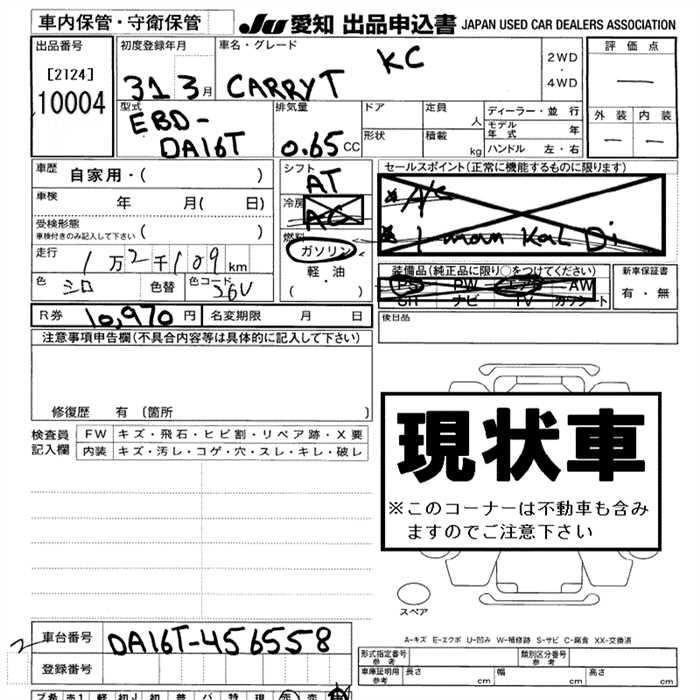 車内保管・守衛保管 JU 愛知 出品申込書 JAPAN USED CAR DEALERS ASSOCIATION
出品番号 初度登録年月 車名・グレード 2WD・4WD 評価点
[2124] 31 3月 CARRY T KC —
10004 型式 排気量 ドア 定員 人 ディーラー・並行 外装 内装
EBD- 0.65 CC 形状 積載 kg モデル年式 年 — —
DA16T ハンドル 左・右
車歴 自家用・( ) シフト AT セールスポイント(正常に機能するものに限ります)
車検 年 月( 日) 冷房 AC
受検形態 ( )
車検付きのみ記入して下さい
燃料 ガソリン 1 man Kal Di
走行 1万2千109km 軽・油 装備品(純正品に限り○をつけてください) 新車保証書
色 シロ 色替 色コード 26U ・( ) PS PW エアB AW 有・無
SR ナビ TV カワシート
R券 10,970円 名変期限 月 日 後日品
注意事項申告欄(不具合内容等は具体的に記入して下さい)
修復歴 有(箇所 )
検査員 FW キズ・飛石・ヒビ割・リペア跡・X要
記入欄 内装 キズ・汚レ・コゲ・穴・スレ・キレ・破レ
現状車
※このコーナーは不動車も含み
ますのでご注意下さい
スペア
A-キズ E-エクボ U-凹み W-補修跡 S-サビ C-腐食 XX-交換済
2 車台番号 DA16T-456558
登録番号
形式指定番号 参考 類別区分番号 参考
車庫証明用 参考 長さ cm 幅 cm 高さ cm